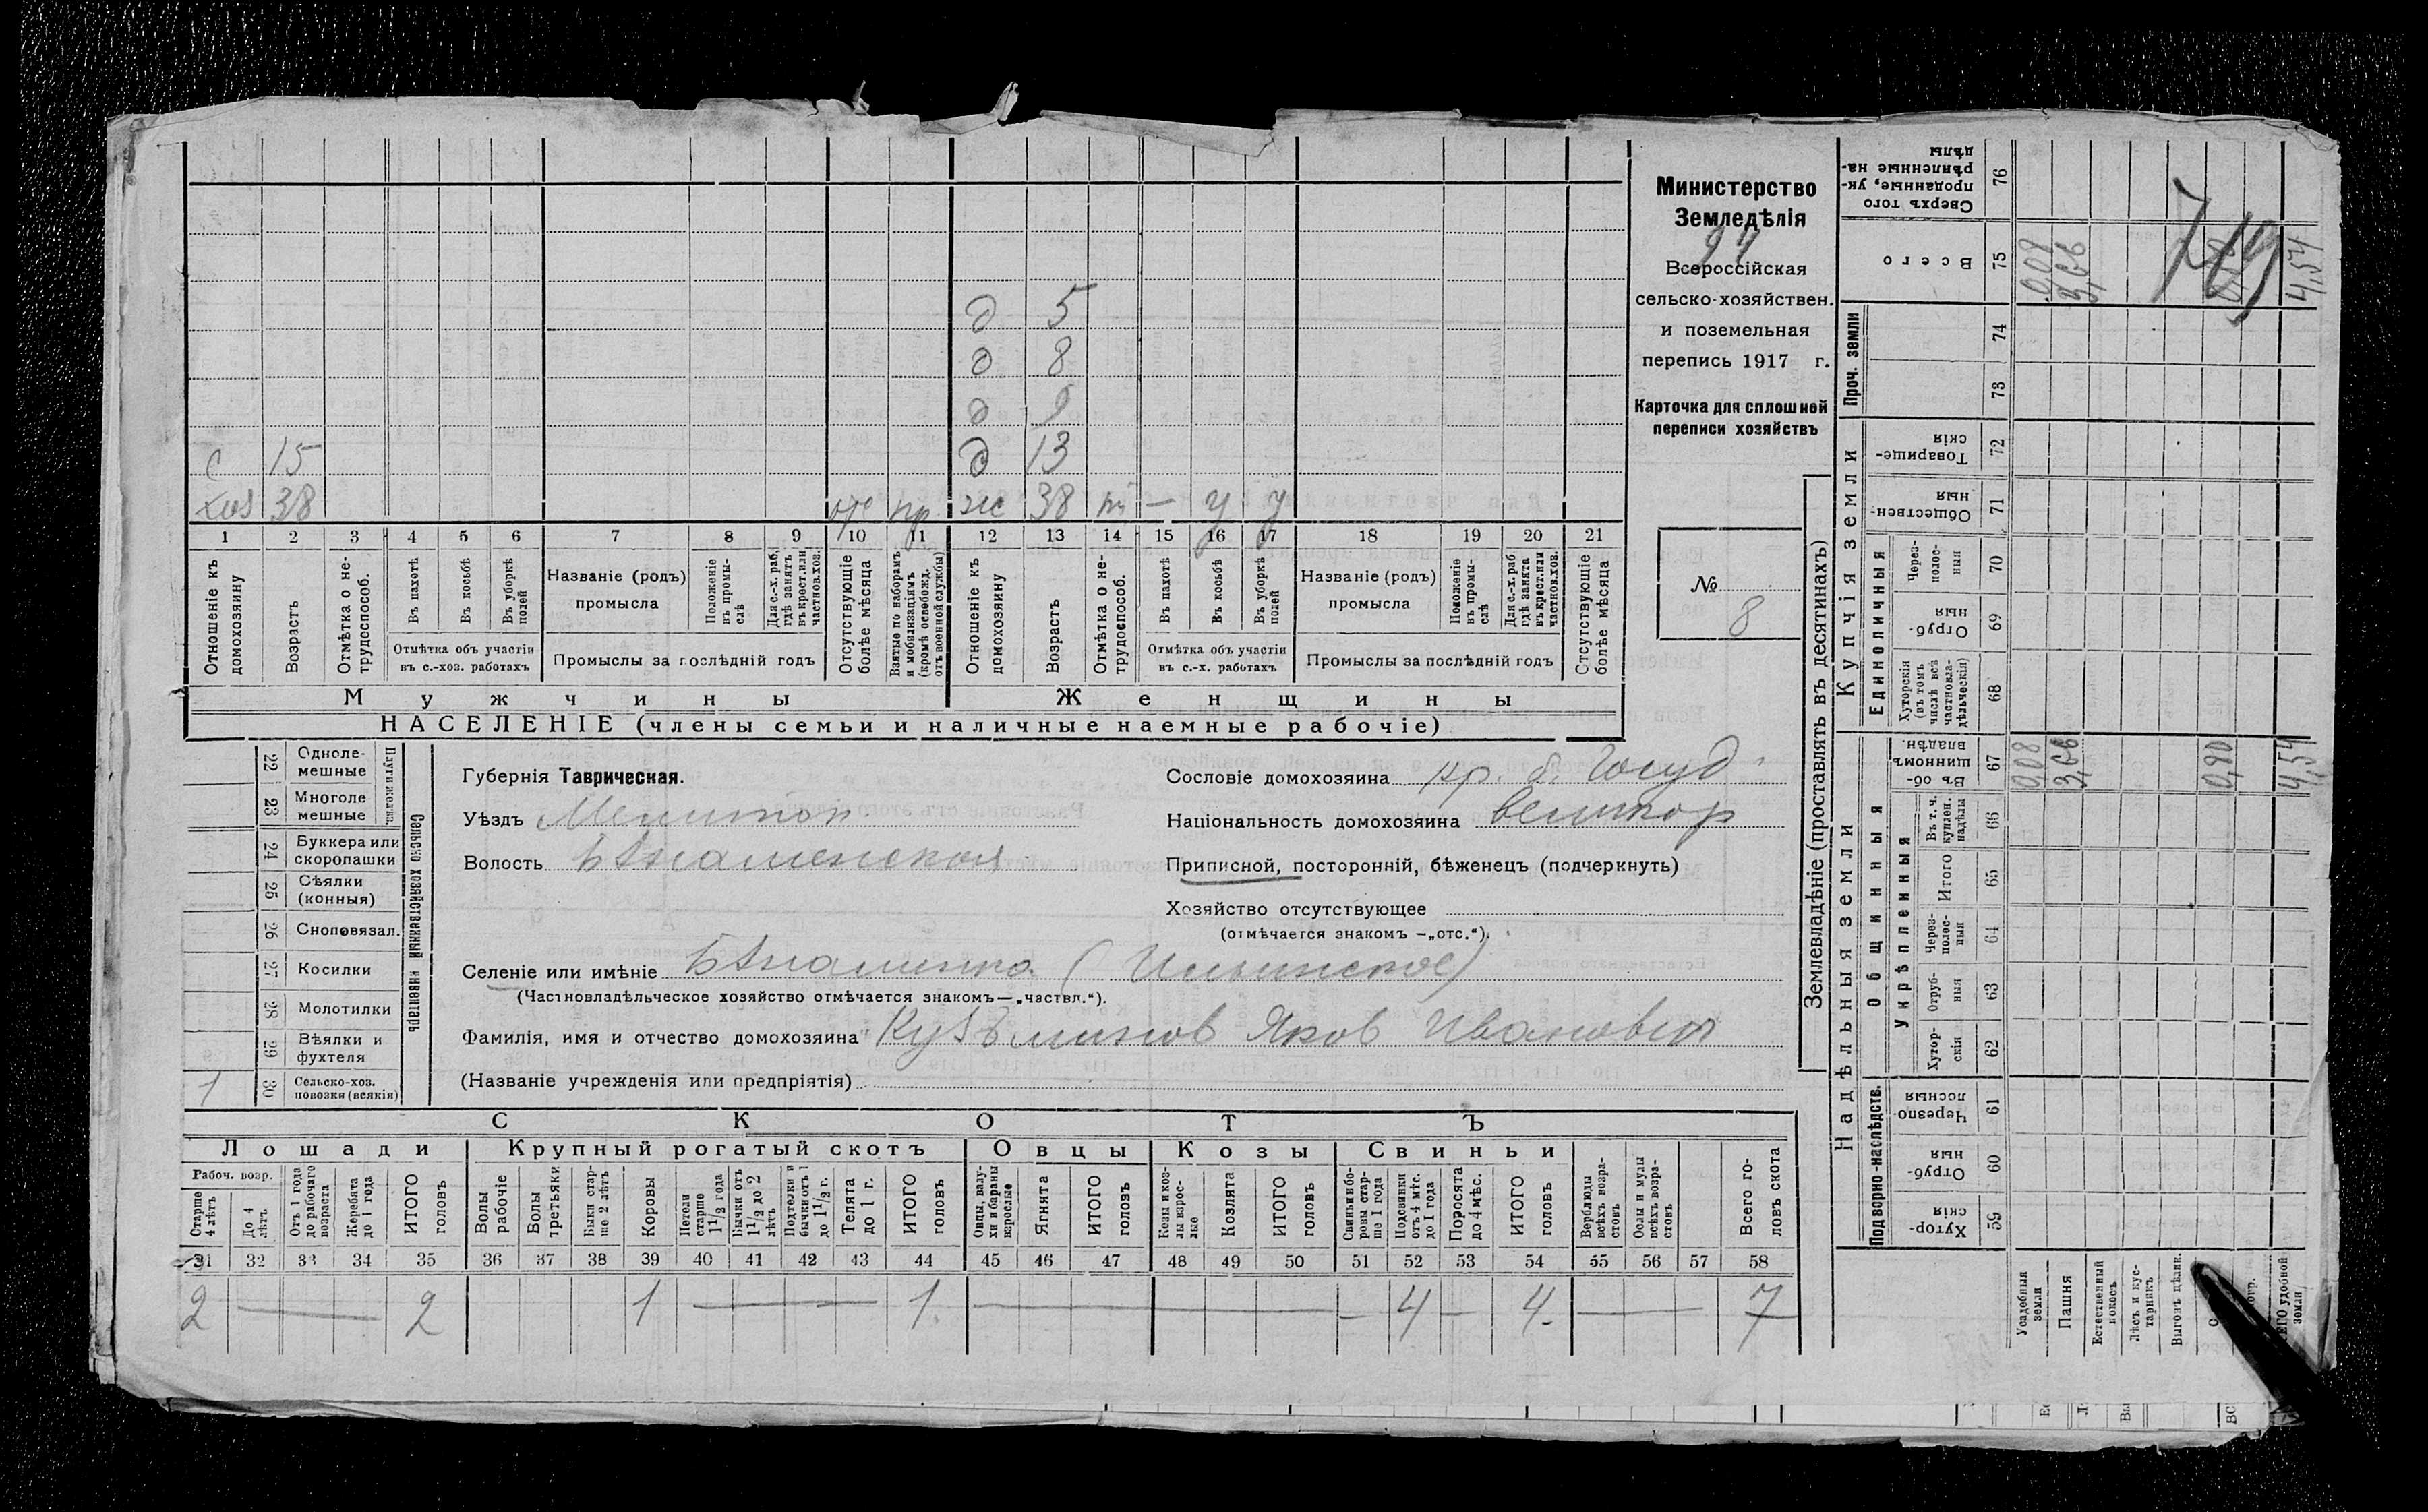 д 5
д 8
д 9
с 15 д 13
хоз 38 отс пр. ж 38 – у у
1 2 3 4 5 6 7 8 9 10 11 12 13 14 15 16 17 18 19 20 21
Отношеніе къ домохозяину
Возрастъ
Отмѣтка о не-трудоспособ.
Въ пахотѣ
Въ косьбѣ
Въ уборкѣ полей
Отмѣтка объ участіи въ с.-хоз. работахъ
Названіе (родъ) промысла
Положеніе въ промы-слѣ
Для с.-х. раб, гдѣ занятъ въ крест. или частнов. хоз.
Промыслы за послѣдній годъ
Отсутствующіе болѣе мѣсяца
Взятые по наборамъ и мобилизаціямъ (кромѣ освобожд. отъ военной службы)
Отношеніе къ домохозяину
Возрастъ
Отмѣтка о не-трудоспособ.
Въ пахотѣ
Въ косьбѣ
Въ уборкѣ полей
Отмѣтка объ участіи въ с.-х. работахъ
Названіе (родъ) промысла
Положеніе въ промы-слѣ
Для с.-х. раб гдѣ занята въ крест. или частнов. хоз.
Промыслы за послѣдній годъ
Отсутствующіе болѣе мѣсяца
Мужчины
Женщины
НАСЕЛЕНІЕ (члены семьи и наличные наемные рабочіе)
Министерство
Земледѣлія
Всероссійская
сельско-хозяйствен.
и поземельная
перепись 1917 г.
Карточка для сплошной
переписи хозяйствъ
№
8
22 Одноле-мешные
23 Многоле мешные
24 Буккера или скоропашки
25 Сѣялки (конныя)
26 Сноповязал.
27 Косилки
28 Молотилки
29 Вѣялки и фухтеля
1 30 Сельско-хоз. повозки (всякія)
Сельско хозяйственный инвентарь
Губернія Таврическая.
Уѣздъ Мелитоп.
Волость Б Знаменская
Сословіе домохозяина кр. б. Госуд
Національность домохозяина великор
Приписной, посторонній, бѣженецъ (подчеркнуть)
Хозяйство отсутствующее
(отмѣчается знакомъ –„отс.“).
Селеніе или имѣніе Б Знаменка (Ильинское)
(Частновладѣльческое хозяйство отмѣчается знакомъ—„частвл.“).
Фамилія, имя и отчество домохозяина Кузьминов Яков Иванович
(Названіе учрежденія или предпріятія)
СКОТЪ
Лошади Крупный рогатый скотъ Овцы Козы Свиньи
Рабоч. возр.
Старше 4 лѣтъ
До 4 лѣтъ
Отъ 1 года до рабочаго возраста
Жеребята до 1 года
ИТОГО головъ
Волы рабочіе
Волы третьяки
Быки стар-ше 2 лѣтъ
Коровы
Нетели старше 1 1/2 года
Бычки отъ 1 1/2 до 2 лѣтъ
Подтелки и бычки отъ 1 до 1 1/2 г.
Телята до 1 г.
ИТОГО головъ
Овцы, валу-хи и бараны взрослые
Ягнята
ИТОГО головъ
Козы и коз-лы взрос-лые
Козлята
ИТОГО головъ
Свиньи и бо-ровы стар-ше 1 года
Подсвинки отъ 4 мѣс. до 1 года
Поросята до 4 мѣс.
ИТОГО головъ
Верблюды всѣхъ возра-стовъ
Ослы и мулы всѣхъ возра-стовъ
Всего го-ловъ скота
31 32 33 34 35 36 37 38 39 40 41 42 43 44 45 46 47 48 49 50 51 52 53 54 55 56 57 58
2 — 2 1 — 1. — 4 – 4. — 7
Землевладѣніе (проставлять въ десятинахъ)
Надѣльныя земли
Купчія земли
Проч. земли
Подворно-наслѣдств.
Общинныя
Укрѣпленныя
Единоличныя
Сверхъ того проданные, ук-рѣпленные на-дѣлы 76
Всего 75 0,08 3,66 4,54
74
73
Товарище-скія 72
Обществен-ныя 71
Через-полос-ныя 70
Отруб-ныя 69
Хуторскія (въ томъ числѣ всѣ частновла-дѣльческія) 68
Въ об-щинномъ владѣн. 67 0,08 3,66 0,80 4,54
Въ т. ч. куплен. надѣлы 66
Итого 65
Через-полос-ныя 64
Отруб-ныя 63
Хутор-скія 62
Черезпо-лосныя 61
Отруб-ныя 60
Хутор-скія 59
Усадебныя земли
Пашня
Естественный покосъ
Лѣсъ и кус-тарникъ
Выгонъ цѣлин.
удобной земли